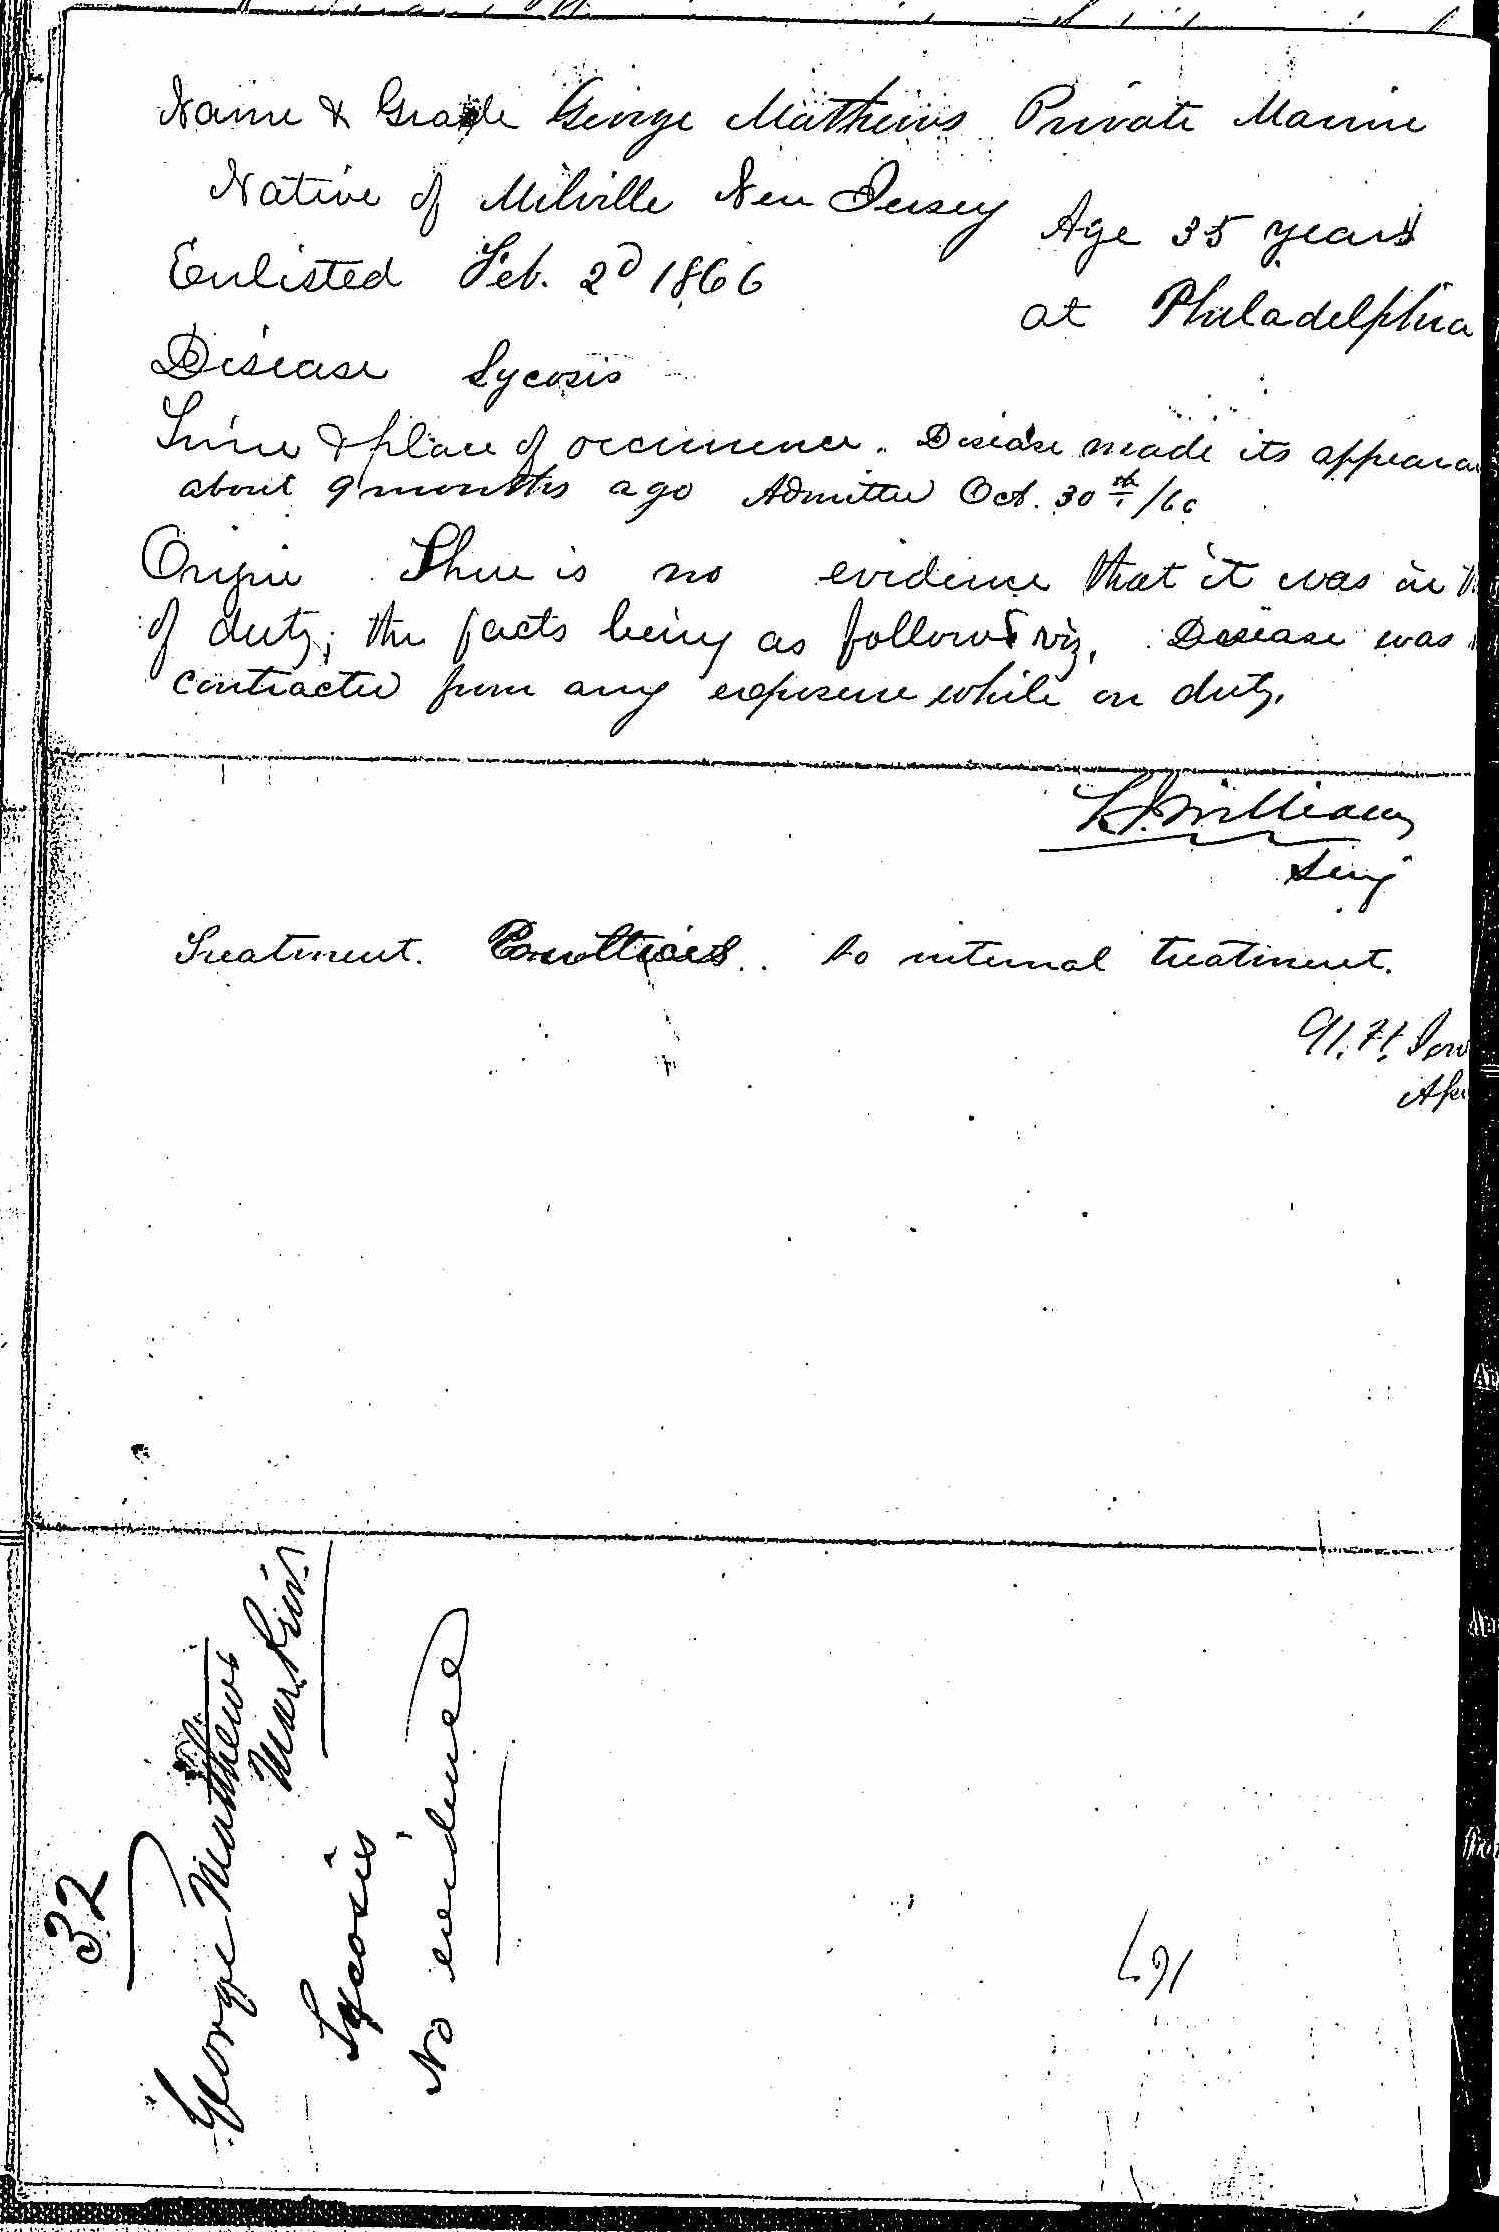 Name & Grade George Mathews Private Marine
Native of Milville New Jersey Age 35 years
Enlisted Feb. 2d 1866 at Philadelphia
Disease Sycosis
Time & place of occurrence. Disease made its appeara
about 9 months ago Admitted Oct. 30th /66
Origin There is no evidence that it was in
of duty; the facts being as follows viz. Disease was
contracted from any exposure while on duty.
Surg
Treatment. Poultices. No internal treatment.
32
George Matthews
Mar. Priv.
Sycosis
No evidence
167